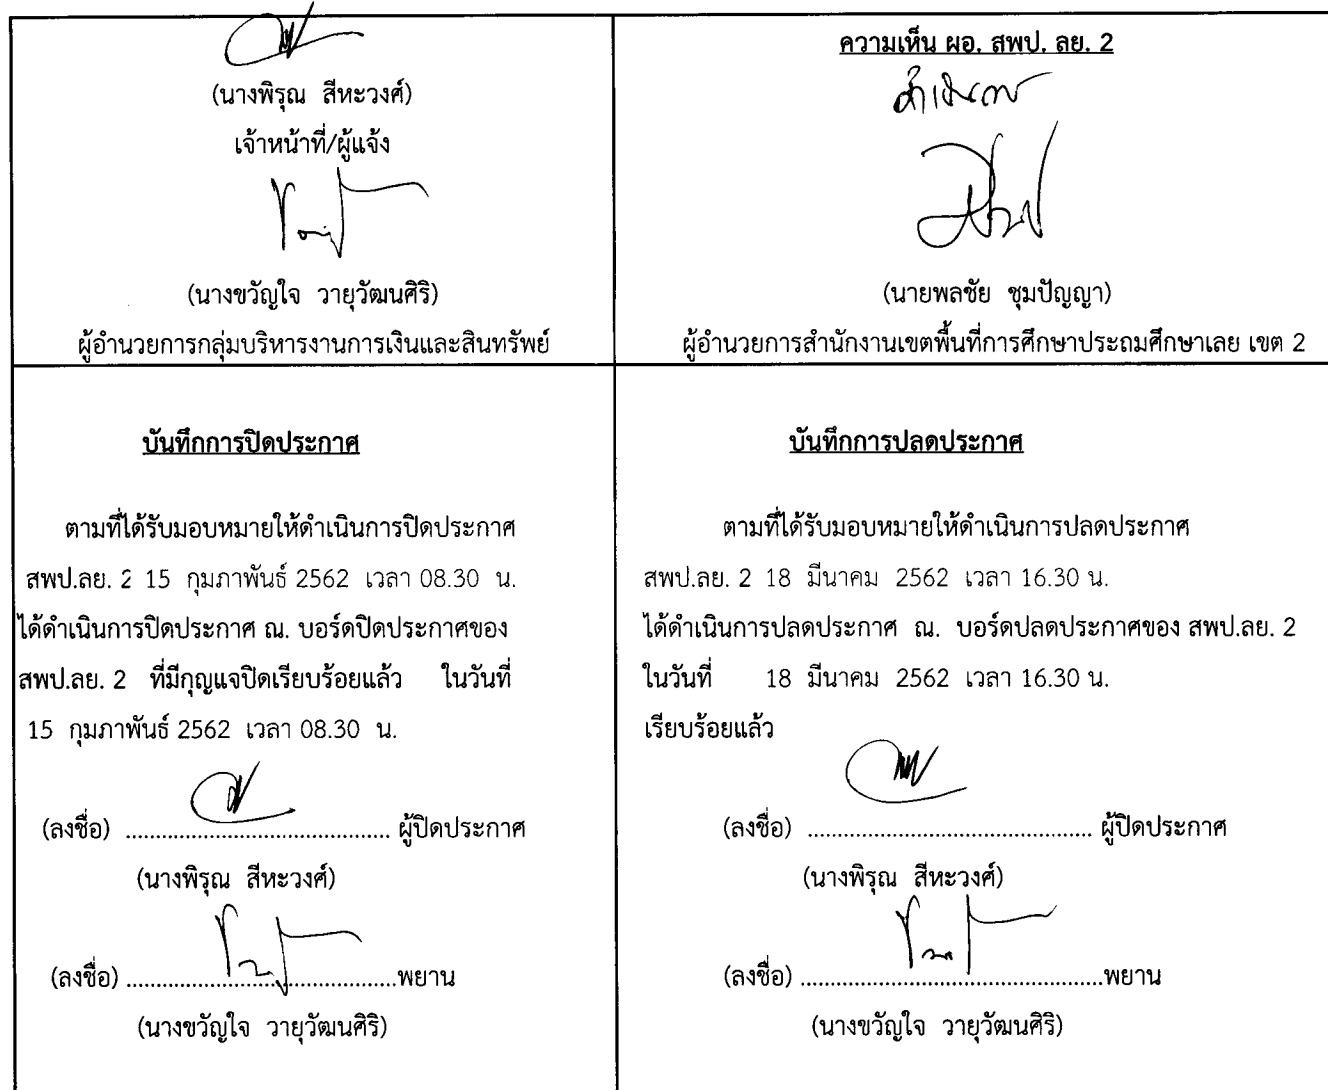 (นางพิรุณ สีหะวงศ์)
เจ้าหน้าที่/ผู้แจ้ง
(นางขวัญใจ วายุวัฒนศิริ)
ผู้อำนวยการกลุ่มบริหารงานการเงินและสินทรัพย์
ความเห็น ผอ. สพป. ลย. 2
ดำเนินการ
(นายพลชัย ชุมปัญญา)
ผู้อำนวยการสำนักงานเขตพื้นที่การศึกษาประถมศึกษาเลย เขต 2
บันทึกการปิดประกาศ
ตามที่ได้รับมอบหมายให้ดำเนินการปิดประกาศ
สพป.ลย. 2 15 กุมภาพันธ์ 2562 เวลา 08.30 น.
ได้ดำเนินการปิดประกาศ ณ. บอร์ดปิดประกาศของ
สพป.ลย. 2 ที่มีกุญแจปิดเรียบร้อยแล้ว ในวันที่
15 กุมภาพันธ์ 2562 เวลา 08.30 น.
(ลงชื่อ) ............................................ ผู้ปิดประกาศ
(นางพิรุณ สีหะวงศ์)
(ลงชื่อ) .............................................พยาน
(นางขวัญใจ วายุวัฒนศิริ)
บันทึกการปลดประกาศ
ตามที่ได้รับมอบหมายให้ดำเนินการปลดประกาศ
สพป.ลย. 2 18 มีนาคม 2562 เวลา 16.30 น.
ได้ดำเนินการปลดประกาศ ณ. บอร์ดปลดประกาศของ สพป.ลย. 2
ในวันที่ 18 มีนาคม 2562 เวลา 16.30 น.
เรียบร้อยแล้ว
(ลงชื่อ) ................................................ ผู้ปิดประกาศ
(นางพิรุณ สีหะวงศ์)
(ลงชื่อ) ...................................................พยาน
(นางขวัญใจ วายุวัฒนศิริ)